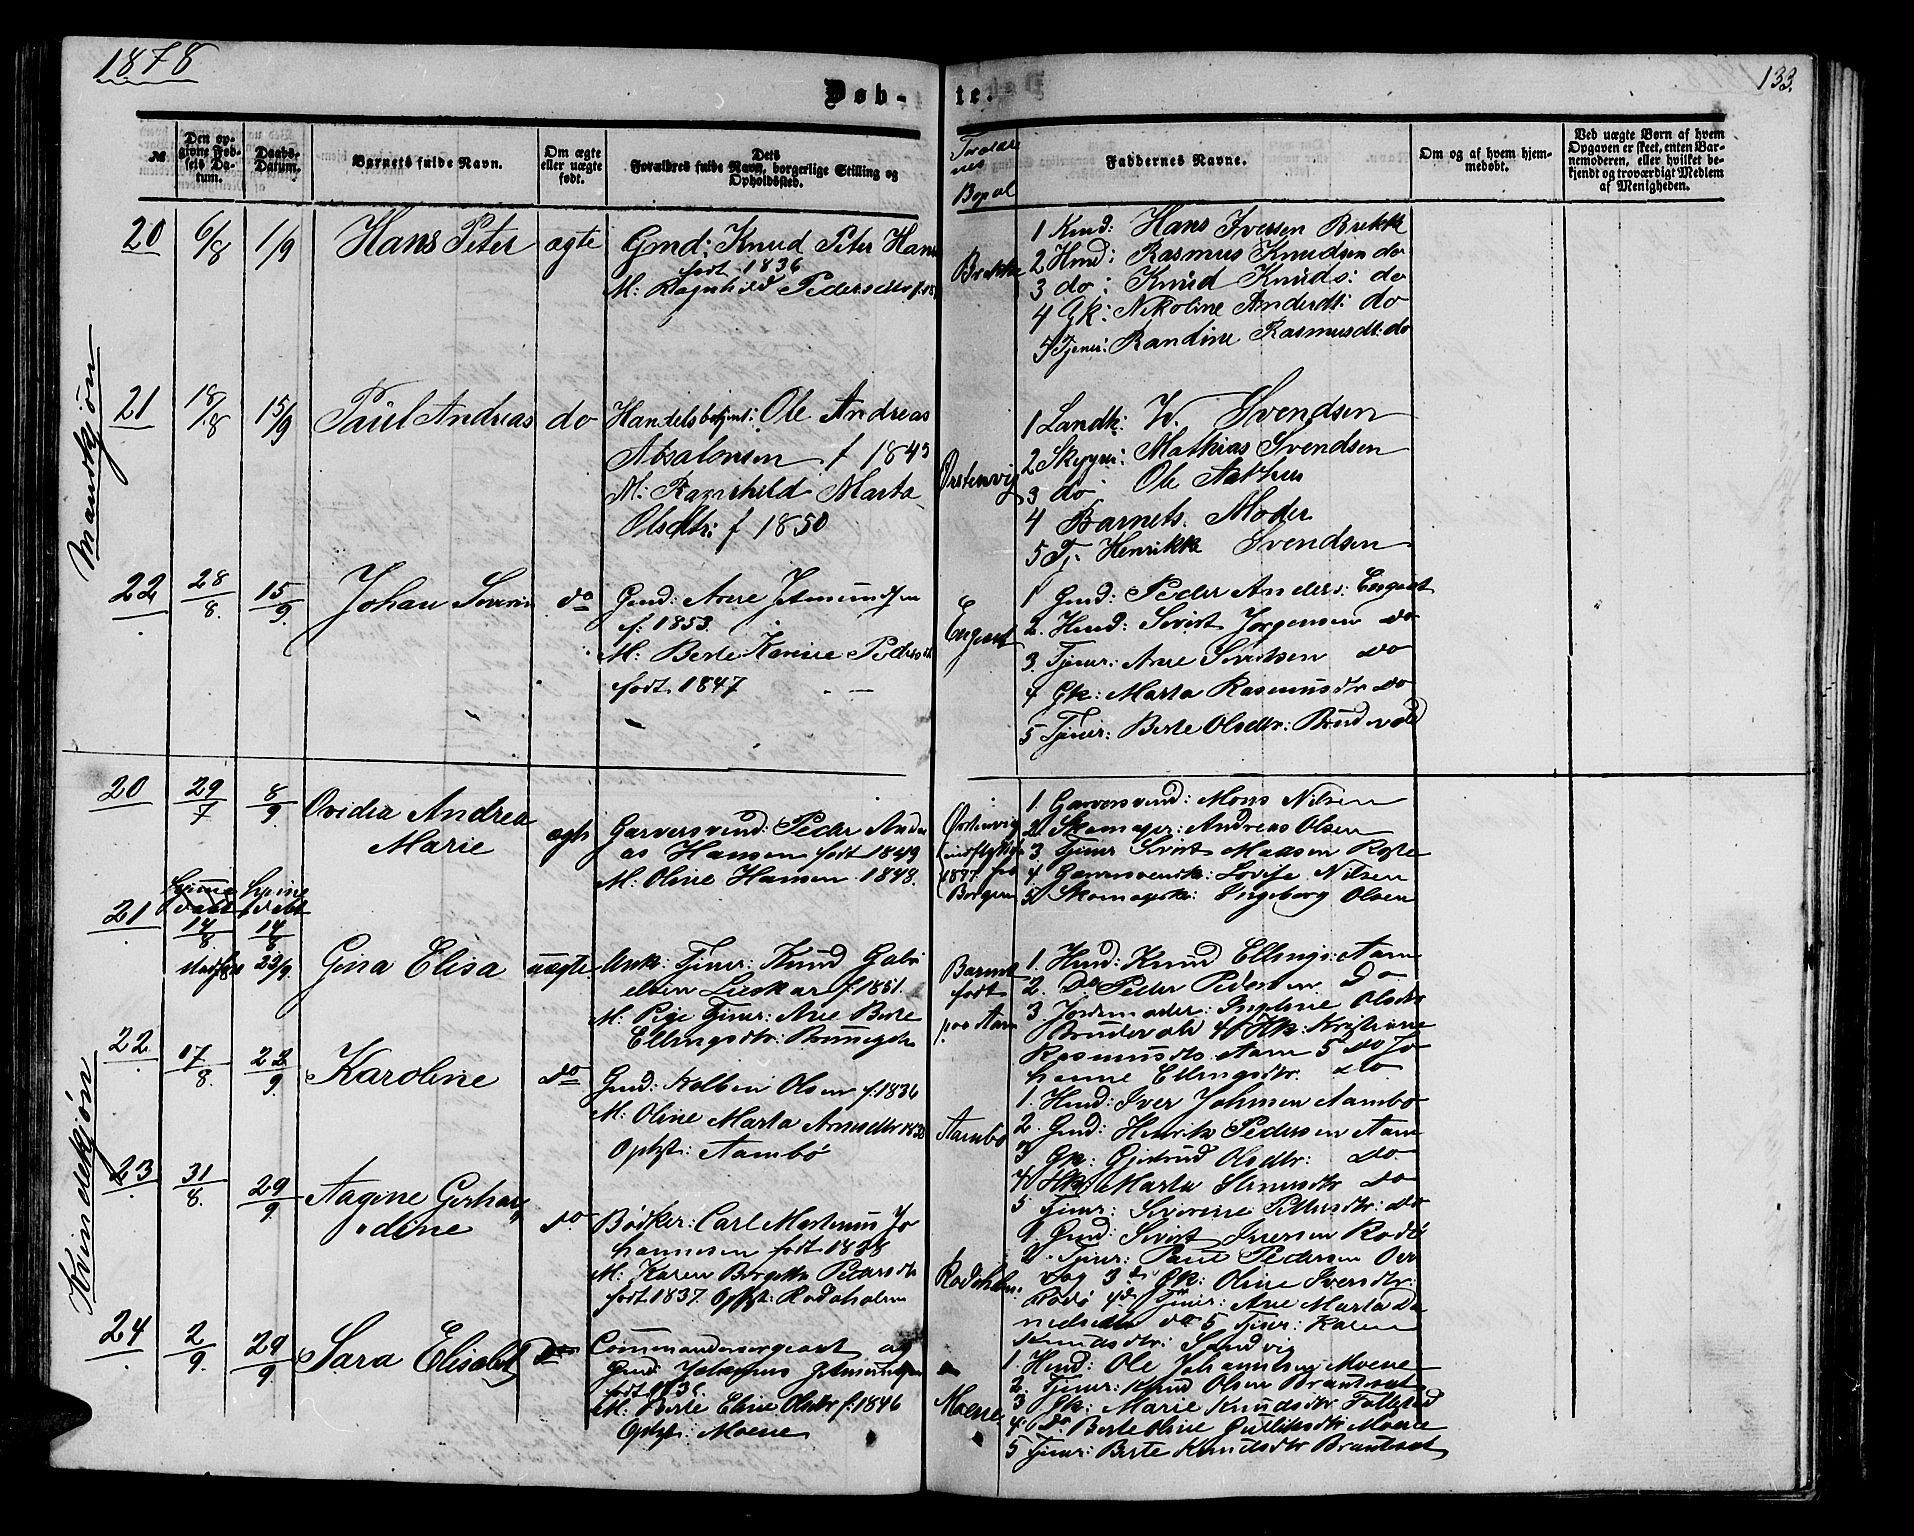 1878
133.
Døb-te.
№
Den opgivne Fødsels Datum.
Daabs-Datum.
Barnets fulde Navn.
Om ægte eller uægte født.
Dets Forældres fulde Navn, borgerlige Stilling og Opholdssted.
Bopæl
Faddernes Navne.
Om og af hvem hjemmedøbt.
Ved uægte Børn af hvem Opgaven er skeet, enten Barnemoderen, eller hvilket bekjendt og troværdigt Medlem af Menigheden.
Mandkjøn
20 6/8 1/9 Hans Peter ægte
Gmd: Knud Peter Hans
født 1836
M: Ragnhild Pedersdtr
Brekke
1 Hans Iversen Brekke
2 Hmd: Rasmus Knudsen do
3 do: Knud Knuds: do
4 Gk: Nikoline Andersdt: do
5 Tjener: Randine Rasmusdt: do
21 18/8 15/9 Paul Andreas do
Handelsbetjent: Ole Andreas
Absalonsen f 1845
M: Ragnhild Marta
Olsdtr: f 1850
Ørstenvig
1 Landh: W. Svendsen
2 Mathias Svendsen
3 do Ole Aakhus
4 Barnets Moder
5 Tj: Henrikke Svendsen
22 28/8 15/9 Johan Severin do
Gmd: Arne Jetmundsen
f: 1853.
M: Berte Karine Peders
født 1847
Engeset
1 Gmd: Peder Anders: Engeset
2. Hmd: Sivert Jørgensen do
3. Tjener: Arne Sivertsen do
4 Gk: Marta Rasmusdtr do
5 Tjener: Berte Olsdtr: Brudevold
Kvindekjøn
20 29/7 8/9 Ovidia Andrea
Marie ægte
Garversvend: Peder Andre
as Hansen født 1849
M: Oline Hansen 1848.
Ørstenvig
indflyttet
Bergen
1. Garversvend: Mons Nilsen
2. Skomager: Andreas Olsen
3. Tjener Sivert Madsen
4. Garversvendk: Lovise Nilsen
5. Skomagerk: Ingeborg Olsen
21 hjemmedøbt 14/8 hjemmedøbt 14/8
22/9. Gina Elisa uægte
Unk: Tjener: Knud Gabri
elsen f. 1851.
M: Pige Tjener: Ane Berte
Ellingsdtr:
Barnet
født
paa Aam
1. Hmd: Knud Ellings: Aam
2. Do Peder Pedersen Do
3. Jordemoder: Olsdtr
Brudevold 4 Hk: Kristiane
Rasmusdtr Aam 5 do Jo
hanne Ellingsdtr. do.
22 17/8 22/9 Karoline do
Gmd: Kolbein Olsen f. 1836
M: Oline Marta
Ophst: Aambø
Aambø
1. Hmd: Iver Johnsen Aambø
2. Gmd: Henrik Pedersen Aam
3 Gk: Gjertrud Olsdtr: do
4 Hk: Marta do
5 Tjener: Severine Pettersdtr: do
23 31/8 29/9 Aagine Gerhar
dine do
Bødker: Carl Martinus Jo
hannesen født 1838
M: Karen Bergitte Pedersdtr
født 1837. Ophst: Rodøholm
Rodøholm
1. Gmd: Sivert Iversen Rodø
2. Tjener: Paul Pedersen Ose
3 Gk: Oline Iversdtr:
Rodø 4 Tjener: Ane Marta Da
nielsdtr do 5 Tjener: Karen
Knudsdtr: Sandvig
24 2/9 29/9 Sara Elisabet do
Commandersergeant og
Gmd: Johannes
M: Berte Eline Olsdtr f. 1846
Ophst: Moene
Moene
1. Hmd: Ole Johannesen Moene
2. Tjener: Knud Olsen
3 Gk: Marie Knudsdtr
4 do Berte Oline Moene
5 Tjener: Berte Knudsdtr